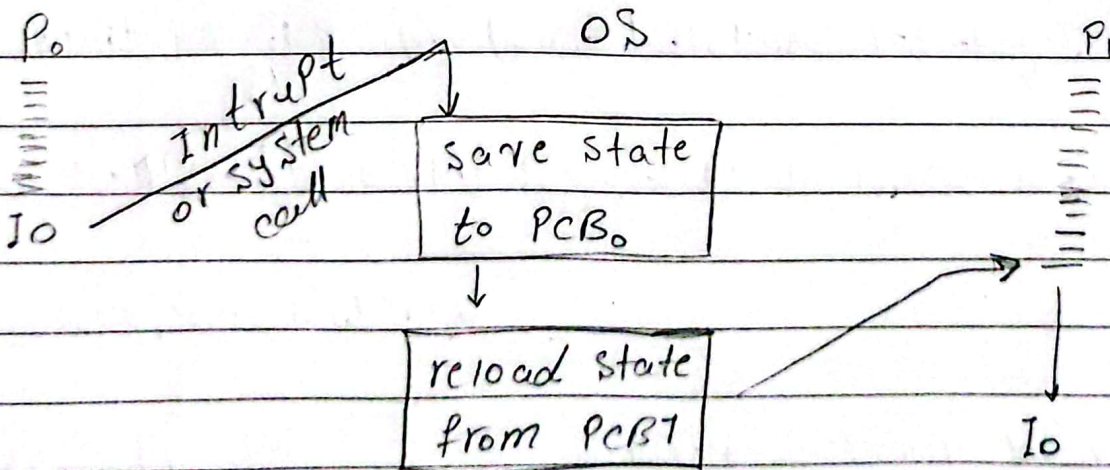 P₀ OS. P₁
Intrupt
or system
call
save state
to PCB₀
IO
reload state
from PCB1
IO